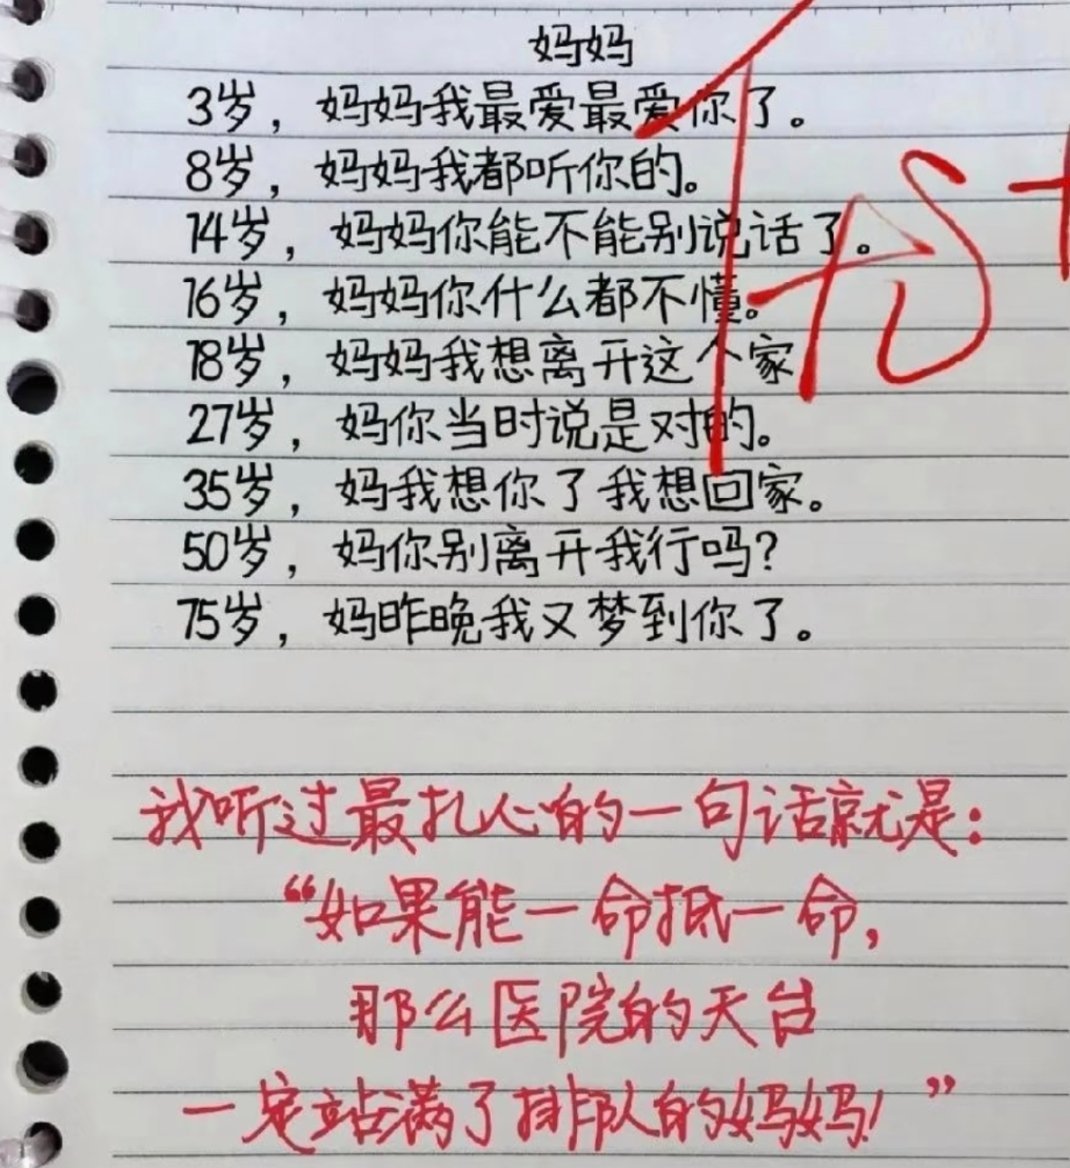 妈妈
3岁，妈妈我最爱最爱你了。
8岁，妈妈我都听你的。
14岁，妈妈你能不能别说话了。
16岁，妈妈你什么都不懂。
18岁，妈妈我想离开这个家
27岁，妈你当时说是对的。
35岁，妈我想你了我想回家。
50岁，妈你别离开我行吗？
75岁，妈昨晚我又梦到你了。
我听过最扎心的一句话就是：
“如果能一命抵一命，
那么医院的天台
一定站满了排队的妈妈！”